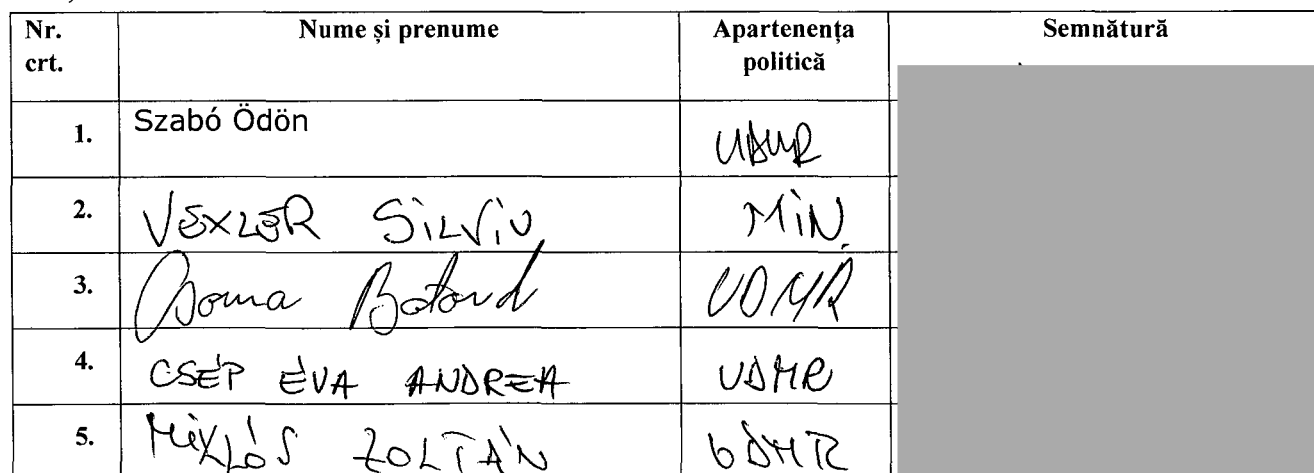 Nr. crt. Nume și prenume Apartenența politică Semnătură
1. Szabó Ödön UDMR
2. VEXLER SILVIU MIN.
3. Csoma Botond UDMR
4. CSÉP ÉVA ANDREA UDMR
5. MIKLÓS ZOLTÁN UDMR